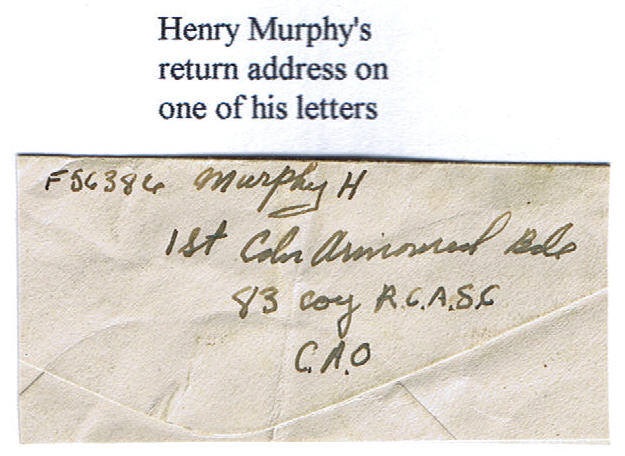 Henry Murphy's
return address on
one of his letters
F56386 Murphy H
1st Cdn Armoured Bde
83 coy R.C.A.S.C
C.A.O